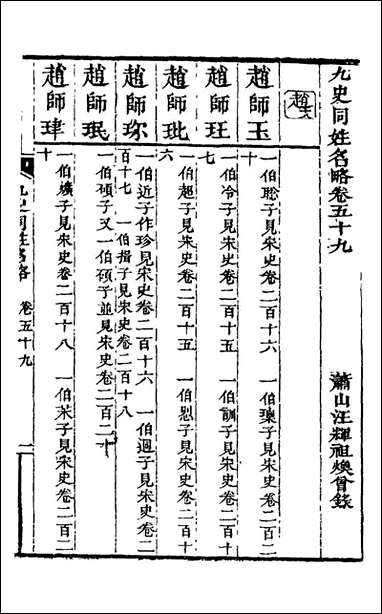 九史同姓名略卷五十九
蕭山汪輝祖煥曾錄
趙六
趙師玉
一伯聡子見宋史卷二百十六　一伯瓅子見宋史卷二百二
十
趙師玨
一伯冷子見宋史卷二百十五　一伯訓子見宋史卷二百十
七
趙師玭
一伯超子見宋史卷二百十五　一伯懇子見宋史卷二百十
六
趙師珎
一伯近子作珍見宋史卷二百十六　一伯迥子見宋史卷二
百十七　一伯搢子見宋史卷二百十八
趙師珉
一伯碩子又一伯碩子並見宋史卷二百二十
趙師琿
一伯壙子見宋史卷二百十八　一伯茉子見宋史卷二百二
十
九史同姓名略
卷五十九
一